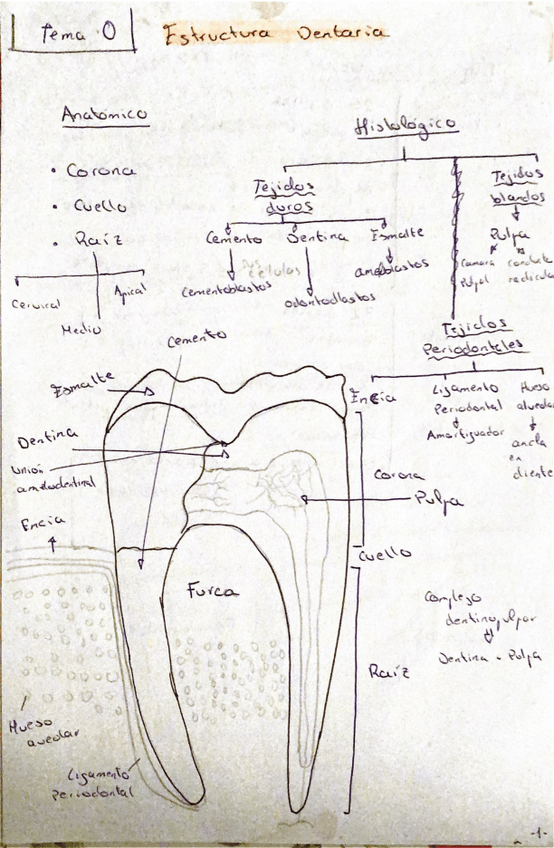 Tema 0
Estructura Dentaria
Anatómico
• Corona
• Cuello
• Raíz
Cervical
Apical
Medio
Histológico
Tejidos
duros
Cemento
Dentina
Esmalte
Células
Cementoblastos
odontoblastos
ameloblastos
Tejidos
blandos
Pulpa
Camara
Pulpal
conducto
radicular
Tejidos
Periodontales
Encía
Ligamento
Periodontal
Amortiguador
Hueso
alveolar
ancla
en
diente
Cemento
Esmalte
Dentina
Unión
amelodentinal
Encía
Corona
Pulpa
Cuello
Furca
Raíz
Complejo
dentinopulpar
Dentina + Pulpa
Hueso
aveolar
Ligamento
Periodontal
-1-